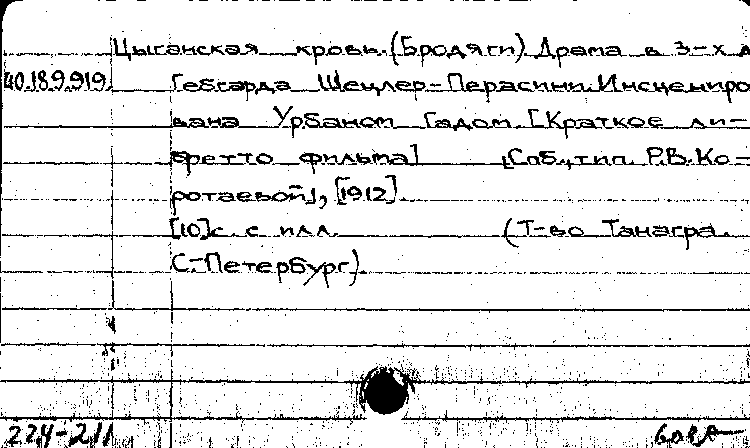 Цыганская кровь. (Бродяги) Драма в 3-х д
40.18.9.919. Гебгарда Шецлер-Перасини. Инсцениро
вана Урбаном Гадом. [Краткое ли-
бретто фильма] [Спб., тип. Р.В. Ко-
ротаевой], [1912].
[10]с. с илл. (Т-во Танагра.
С.-Петербург).
224-211